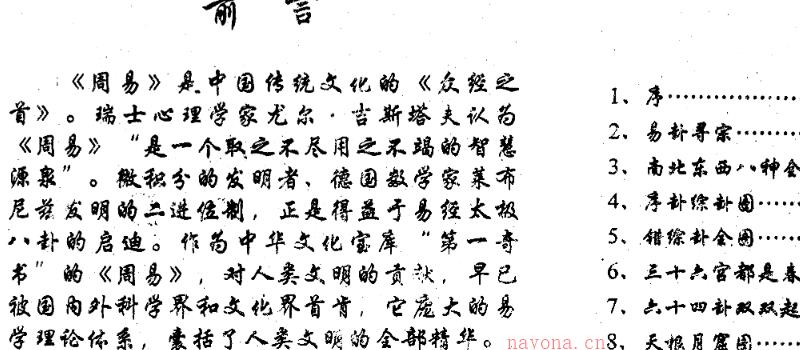 前言
《周易》是中国传统文化的《众经之
首》。瑞士心理学家尤尔·古斯塔夫认为
《周易》“是一个取之不尽用之不竭的智慧
源泉”。微积分的发明者、德国数学家莱布
尼兹发明的二进位制，正是得益于易经太极
八卦的启迪。作为中华文化宝库“第一奇
书”的《周易》，对人类文明的贡献，早已
被国内外科学界和文化界首肯，它庞大的易
学理论体系，囊括了人类文明的全部精华。
1、序……………
2、易卦寻宗…………
3、南北东西八神全
4、序卦综卦图……
5、错综卦全图……
6、三十六宫都是春
7、六十四卦双双起
8、天根月窟图……
navona.cn